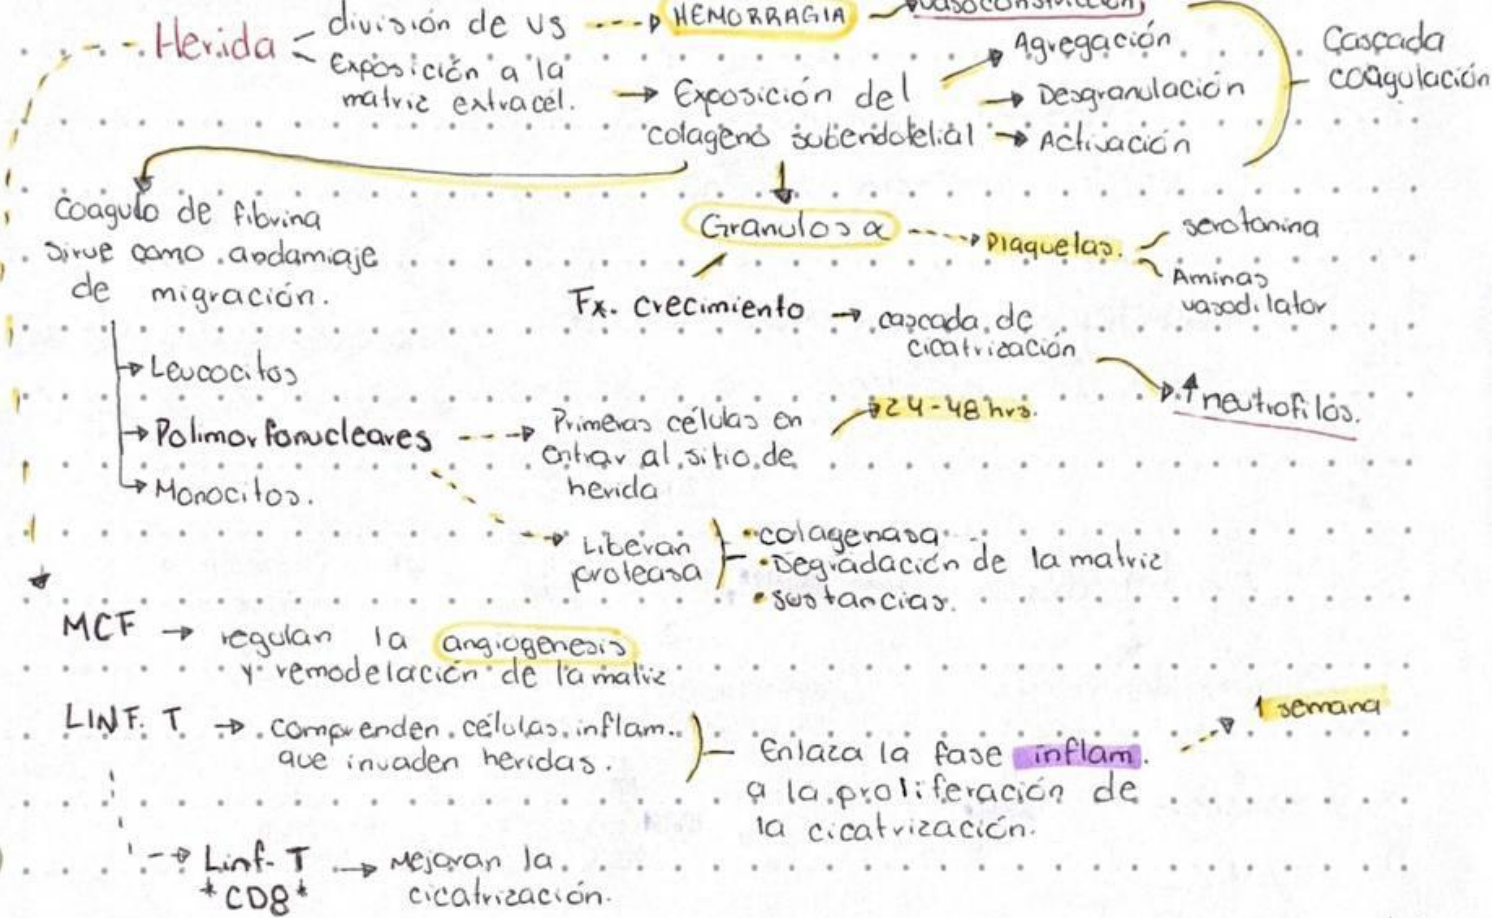 división de vs
HEMORRAGIA
vasoconstricción
Herida
Exposición a la
matriz extracél.
Exposición del
colageno subendotelial
Agregación
Desgranulación
Activación
Cascada
coagulación
Coagulo de fibrina
sirve como andamiaje
de migración.
Granulos α
Plaquetas.
serotonina
Aminas
vasodilator
Fx. crecimiento
cascada de
cicatrización
↑ neutrofilos.
Leucocitos
Polimorfonucleares
Monocitos.
Primeras células en
entrar al sitio de
herida
24-48 hrs.
Liberan
proteasa
•colagenasa
•Degradación de la matriz
•sustancias.
MCF → regulan la angiogenesis
y remodelación de la matriz
LINF. T → comprenden células inflam.
que invaden heridas.
Enlaza la fase inflam.
a la proliferación de
la cicatrización.
1 semana
Linf. T → Mejoran la
*CD8* cicatrización.